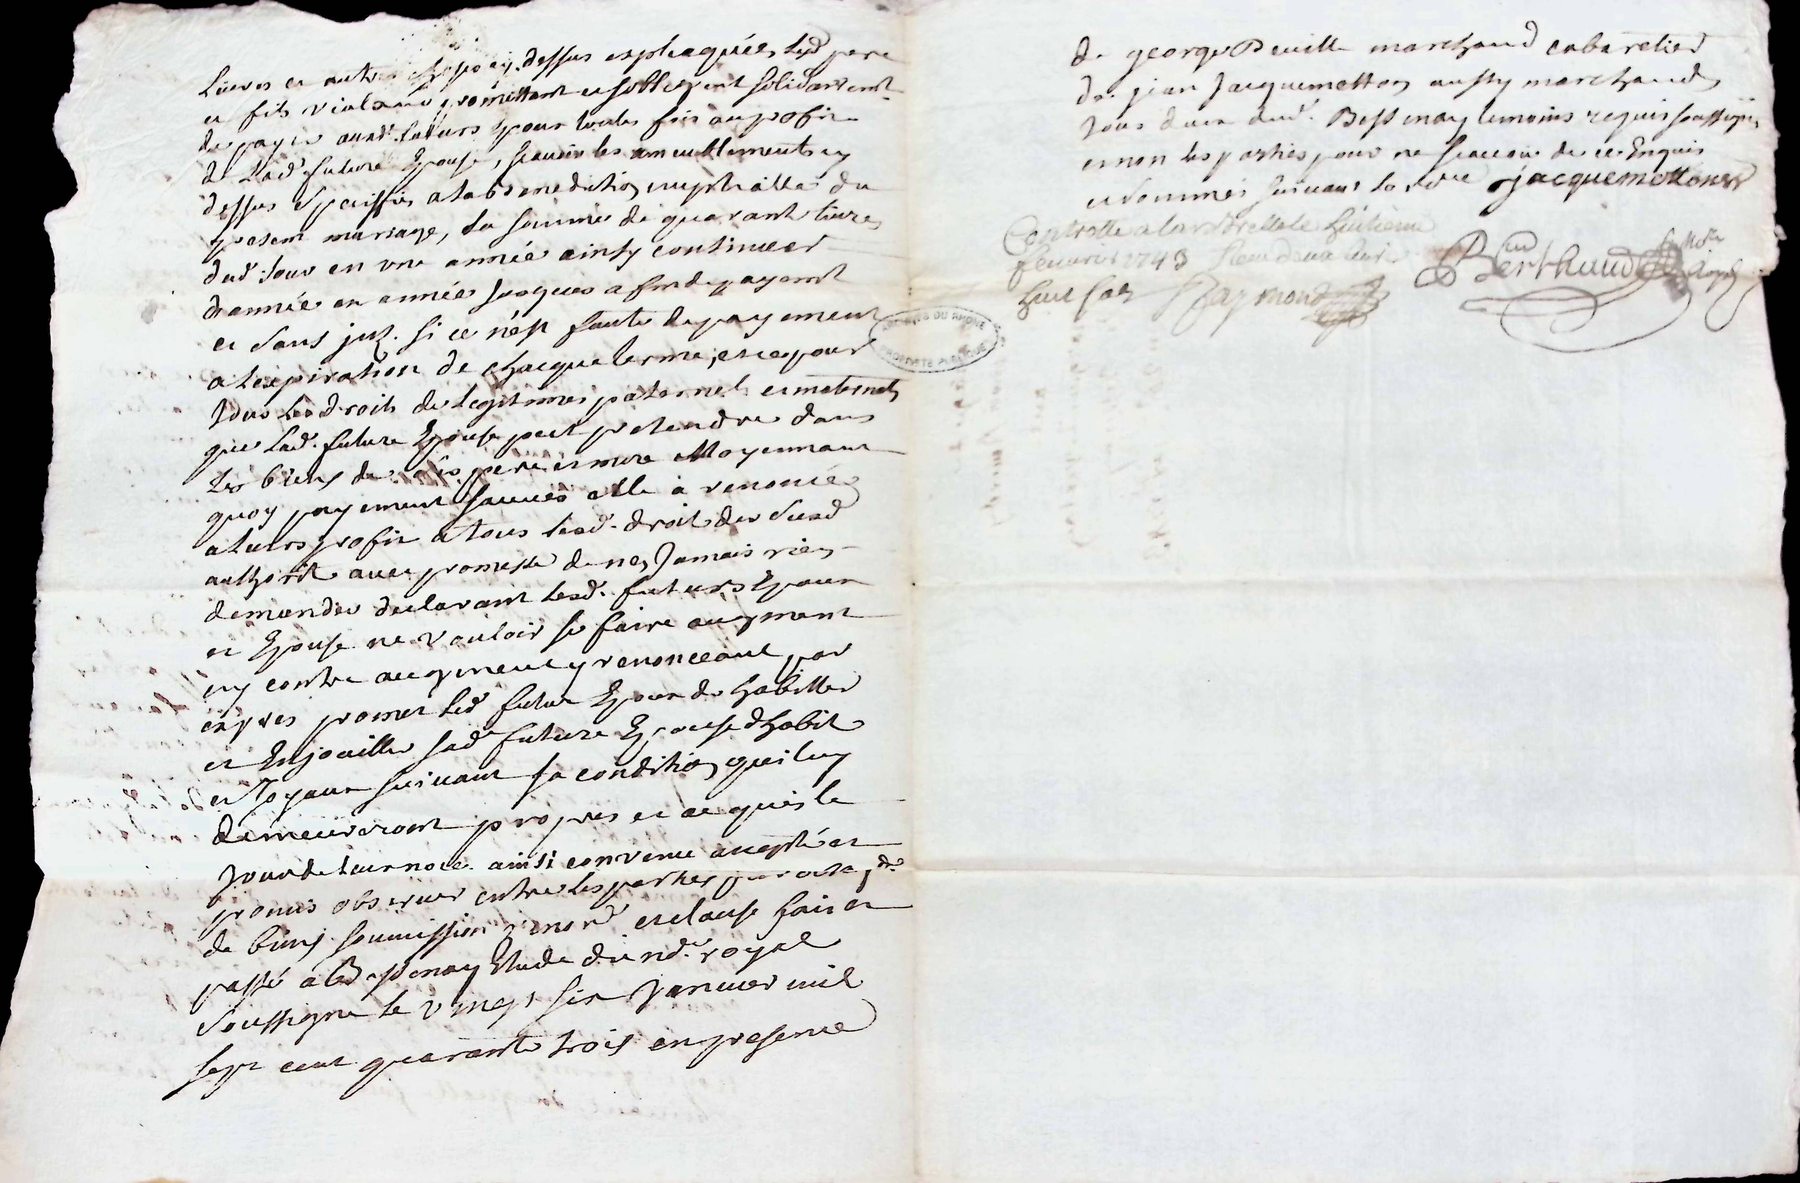 Livres et autres choses cy dessus expliquées, led pere
et fils violand promettant et sobligeant solidairement
de payer auxd. futurs Epoux toutes fois au profit
de Lad. future Epouse, scavoir les ameublements cy
dessus speciffiés a la benediction nuptialle du
present mariage, La somme de quarante livres
dud. jour en une année ainsy continuer
dannée en année jusques a fin de payement
et sans jnt. si ce nest faute de payement
a lexpiration de chacque terme, et ce pour
tous les droits de legitimes paternels et maternels
que Lad. future Epouse peut pretendre dans
Les biens de ses pere et mere Moyennant
quoy payement sauves elle a renoncé
a leurs profit a tous lesd. droit de Susd
authorité avec promesse de ney Jamais rien
demander declarant lesd. futurs Epoux
et Epouse ne vouloir se faire augment
ny contre augment y renonceant par
expres promet led futur Epoux de habiller
et Enjouailler sad. future Epouse dhabit
et Joyaux suivant sa condition qui luy
demeureront propres et acquis le
Jour de leur noce ainsi convenu accepté et
promis observer entre les parties par
de biens soumission renond et clause fait et
passé a Bessenay Etude du nore royal
soussigné le vingt six Janvier mil
sept cent quarante trois en presence
de george marchand cabaretier
de jean Jacquemetton aussy marchand
tous deux dud. Bessenay temoins requis soussignés
et non les parties pour ne scavoir de ce Enquis
et sommés suivant lord.ce jacquemetton
Controllé a larbrelle le huitieme
fevrier 1743 Reçu deux livres
huit sols Raymond
Berthaud
ARCHIVES DU RHONE
PROPRIETE PUBLIQUE